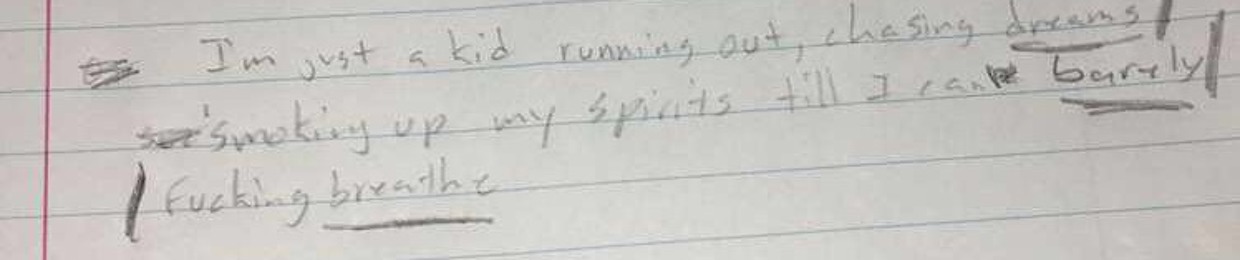 I'm just a kid running out, chasing dreams
smoking up my spirits till I can barely
fucking breathe